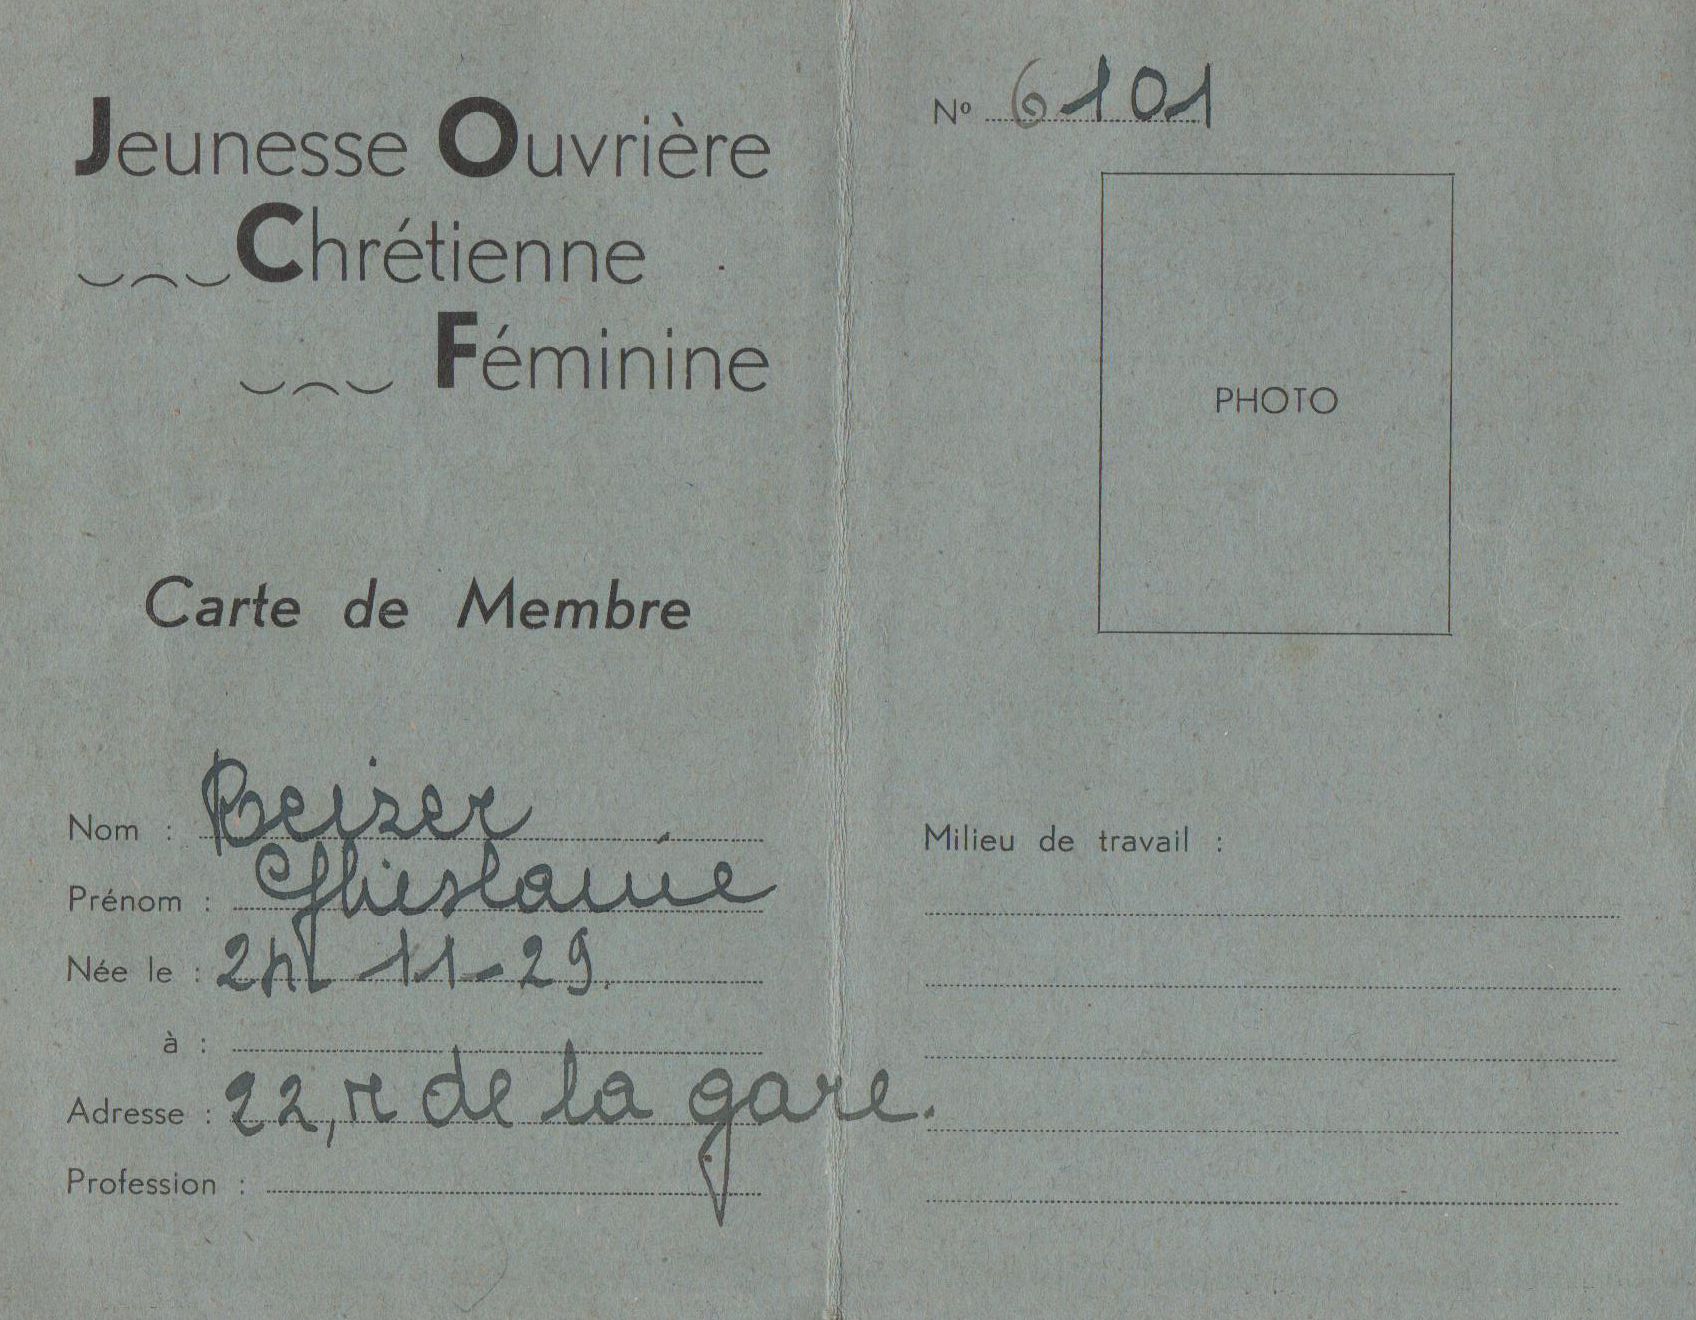 Jeunesse Ouvrière
Chrétienne
Féminine
Carte de Membre
Nom : Reizer
Prénom : Ghislaine
Née le : 24 - 11 - 29.
à :
Adresse : 22, r de la gare.
Profession :
Nº 6101
PHOTO
Milieu de travail :